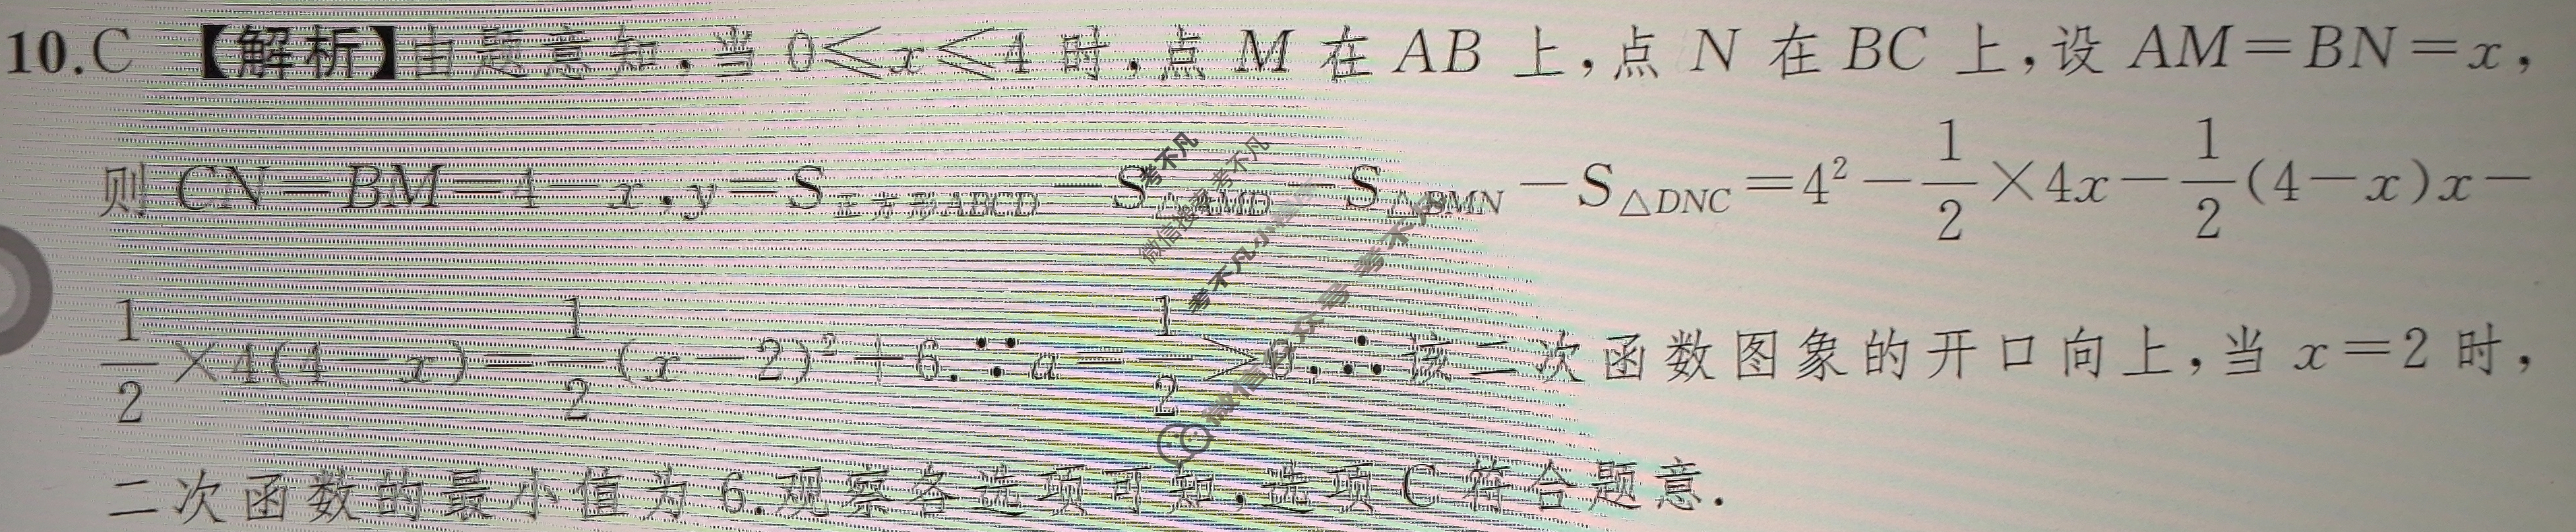 10.C 【解析】由题意知,当 0≤x≤4 时,点 M 在 AB 上,点 N 在 BC 上,设 AM=BN=x,
则 CN=BM=4-x,y=S正方形ABCD-S△AMD-S△BMN-S△DNC=4²-1/2×4x-1/2(4-x)x-
1/2×4(4-x)=1/2(x-2)²+6.∵a=1/2>0,∴该二次函数图象的开口向上,当 x=2 时,
二次函数的最小值为 6.观察各选项可知,选项 C 符合题意.